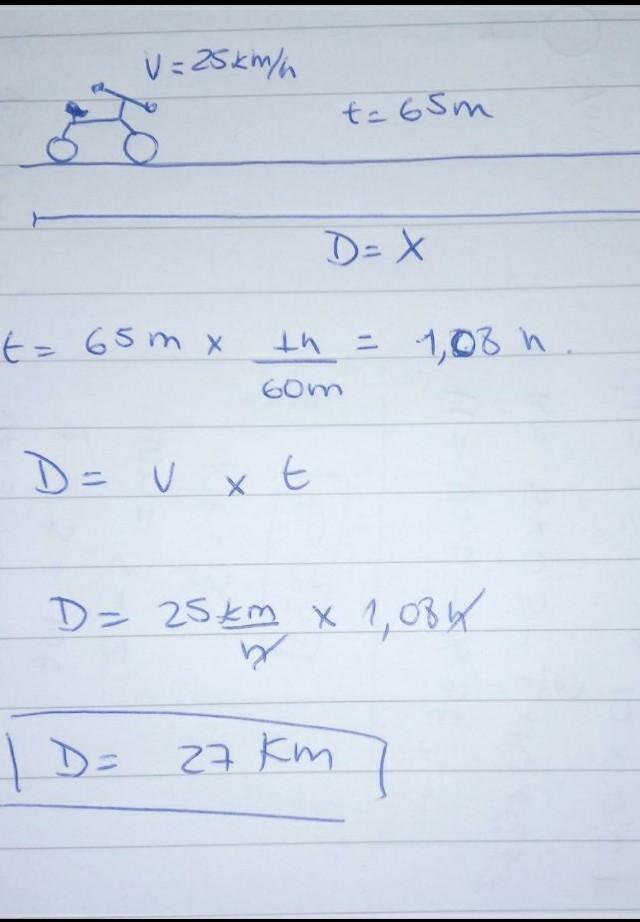 V = 25km/h
t = 65m
D = X
t = 65m x 1h/60m = 1,08 h.
D = V x t
D = 25 km/h x 1,08h
D = 27 Km